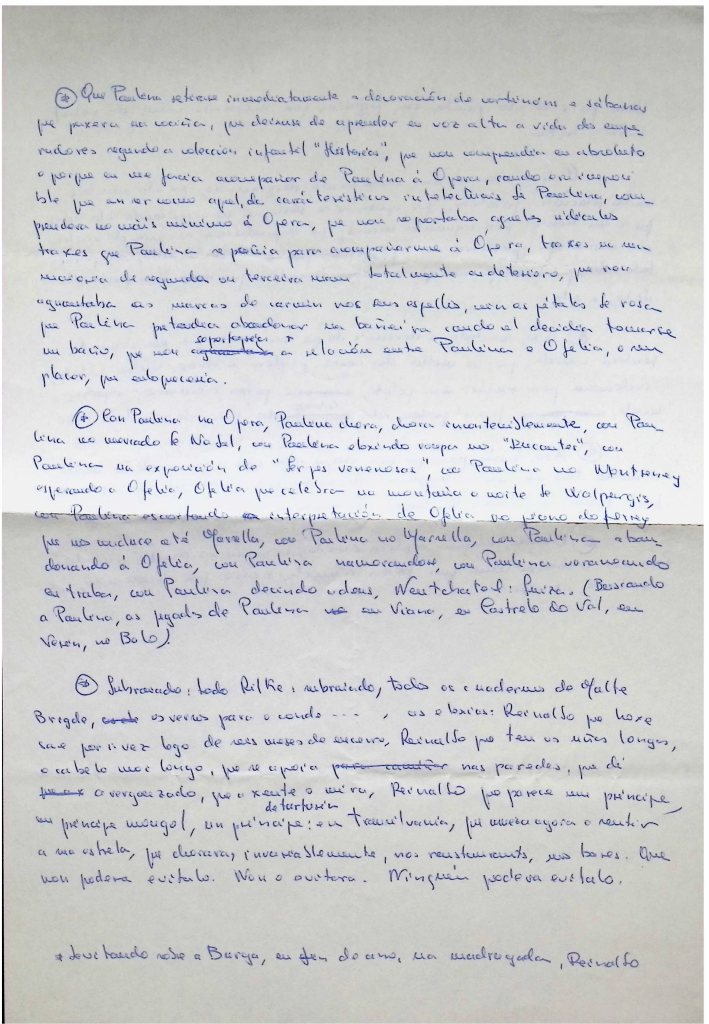 * Que Paulina retirase inmediatamente a decoración de cortinóns e sábanas
que puxera na cociña, que deixase de aprender en voz alta a vida dos empe-
radores segundo a colección infantil "Historias", que non comprendía en absoluto
o porque eu me facía acompañar de Paulina á Opera, cando era imposi-
ble que un ser como aquel, das características intelectuais de Paulina, com-
prendera no máis mínimo á Opera, que non soportaba aqueles ridículos
traxes que Paulina se poñía para acompañarme á Ópera, traxes na súa
maioría de segunda ou terceira man totalmente en deterioro, que non
aguantaba as marcas de carmín nos seus espellos, nin os pétalos de rosa
que Paulina pretendía abandonar na bañeira cando el decidía tomarse
un baño, que non soportaría a relación entre Paulina e Ofelia, o seu
placer, por
* Con Paulina na Opera, Paulina chora, chora incontenáblemente, con Pau-
lina no mercado de Nadal, con Paulina elixindo roupa nos "Encantes", con
Paulina na exposición de "Serpes venenosas", con Paulina no Montseny
esperando a Ofelia, Ofelia que celebra na montaña a noite de Walpergis,
con Paulina escoitando a interpretación de Ofelia ao piano do
que nos conduce até Marsella, con Paulina no Marsella, con Paulina aban-
donando á Ofelia, con Paulina namorándose, con Paulina veraneando
en trabas, con Paulina decindo adeus, Neutchatel: Suiza. (Buscando
a Paulina, as pegadas de Paulina en Viana, en Castrelo do Val, en
Verín, no Bolo).
* Subraiado: todo Rilke: subraiado, todos os cadernos de Malte
Brigde, os versos para o conde ..., as eloxías: Reinaldo que hoxe
sae por 1ª vez logo de seis meses de encerro, Reinaldo que ten as uñas longas,
o cabelo moi longo, que se apoia nas paredes, que di
avergonzado, que a xente o mira, Reinaldo que parece un príncipe,
un príncipe mongol, un príncipe: en Transilvania, que
a súa estrela, que chorara, invariablemente, nos restaurants, nos bares. Que
non poderá evitalo. Non o evitara. Ninguén poderá evitalo.
* Levitando sobre a Burga, en fin de ano, na madrugada, Reinaldo